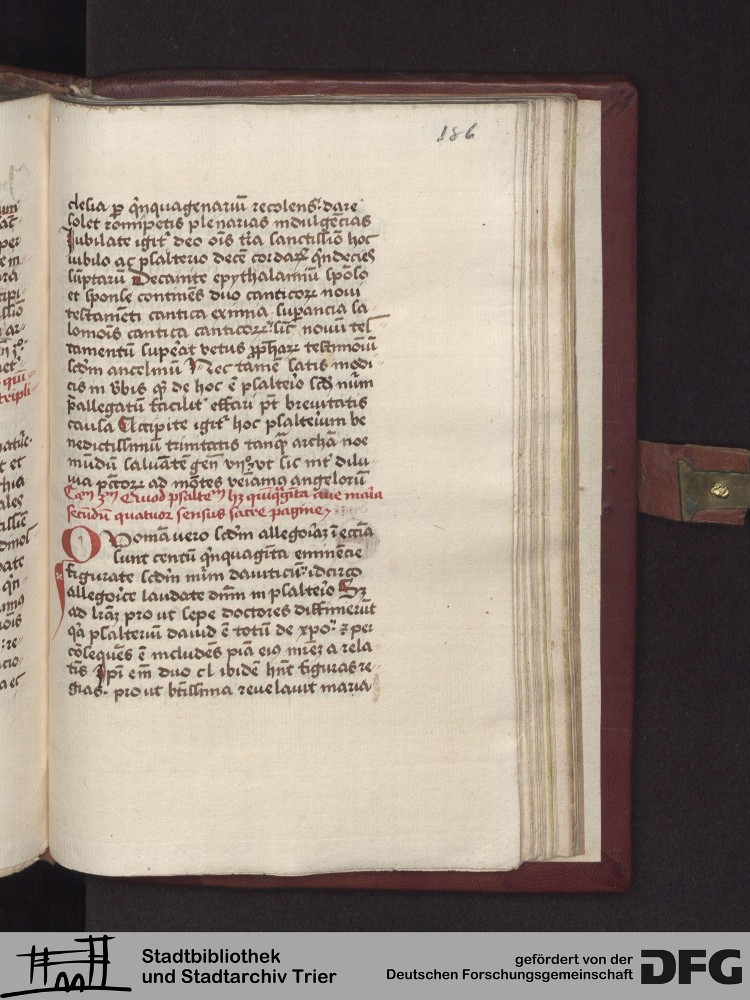 186
clesia ꝑ qͥnquagenariū recolens: dare
solet romipetis plenarias indulgēcias
Iubilate igit᷑ deo oīs tr̄a sanctissīo hoc
iubilo ac psalterio decē cordaꝝ qͥndecies
sūptaꝝ Decantite epythalamiū spōso
et sponse continēs duo canticoꝝ noui
testamēti cantica eximia suꝑancia sa
lomōis cantica canticoꝝ: sic̄ nouū tes
tamentū supēat vetus ꝓphaꝝ testimōiū
scd̄m ancelmū Nec tamē satis modi
cis in v̄bis qꝫ de hoc ē psalteīo scd̄ nūm
p̄allegatū facilit᷑ effari pt̄ breuitatis
causa Accipite igit᷑ hoc psalteīum be
nedictissimū trinitatis tanqꝫ archā noe
mūdū saluātē gen᷑ vt sic int᷑ dilu
uia pc̄torꝝ ad mōtes veiāmus angeloꝝ
psalteīm hꝫ quīqͣgīta aue maīa
secūdū quatuor sensus sacre pagine
Quoniā vero scd̄m allegoīaꝫ ī ecc̄ia
sunt centū qͥnquagīta eminēcie
figurate scd̄m nūm dauiticū: idcirco
allegoīce laudate dn̄m in psalteīo Sꝫ
ad lr̄aꝫ pro ut sepe doctores diffinierūt
qͣ psalteriū dauid ē totū de xpo: ⁊ per
cōseques ē includēs piā eiꝰ mr̄eꝫ a rela
tīs Ip̄i em̄ duo cl ibidē hn̄t figuras re
gias. pro ut bt̄issima reuelauit maria
Stadtbibliothek
und Stadtarchiv Trier
gefördert von der
Deutschen Forschungsgemeinschaft
DFG